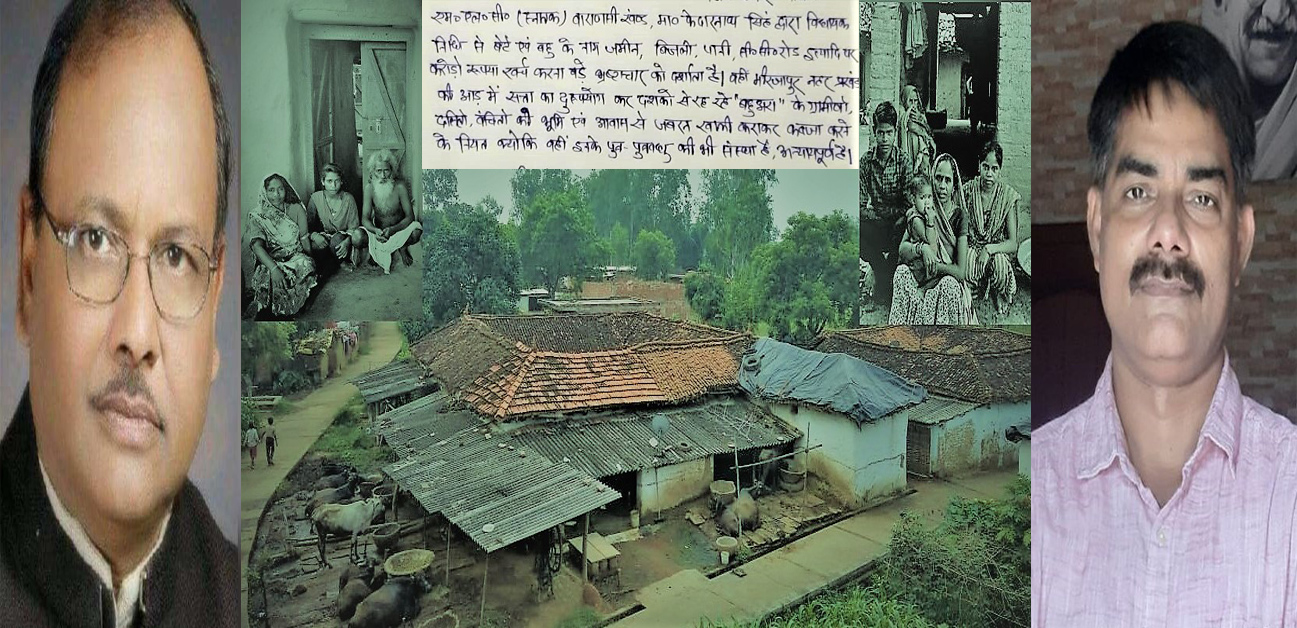 एम०एल०सी० (स्नातक) वाराणसी खण्ड, मा० केदारनाथ सिंह द्वारा विधायक
निधि से बेटे एवं बहू के नाम जमीन, बिजली, पानी, सी०सी०रोड इत्यादि पर
करोड़ो रूपया खर्च करना बड़े भ्रष्टाचार को दर्शाता है। वहीं मीरजापुर नहर प्रखंड
की आड़ में सत्ता का दुरूपयोग कर दशकों से रह रहे "बहुअरा" के ग्रामीणों,
दलितों, वंचितों की भूमि एवं आवास से जबरन खाली कराकर कब्जा करने
के नियत क्योंकि वहीं इनके पुत्र-पुत्रवधु की भी संस्था है, अन्यायपूर्ण है।